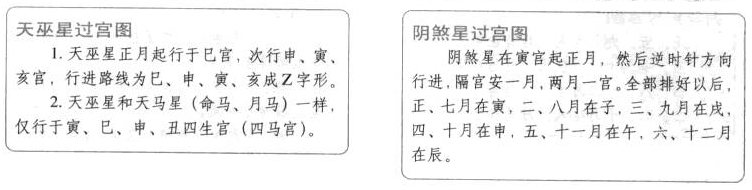 天巫星过宫图
1. 天巫星正月起行于巳宫，次行申、寅、
亥宫，行进路线为巳、申、寅、亥成Z字形。
2. 天巫星和天马星（命马、月马）一样，
仅行于寅、巳、申、丑四生宫（四马宫）。
阴煞星过宫图
阴煞星在寅宫起正月，然后逆时针方向
行进，隔宫安一月，两月一宫。全部排好以后，
正、七月在寅，二、八月在子，三、九月在戌，
四、十月在申，五、十一月在午，六、十二月
在辰。